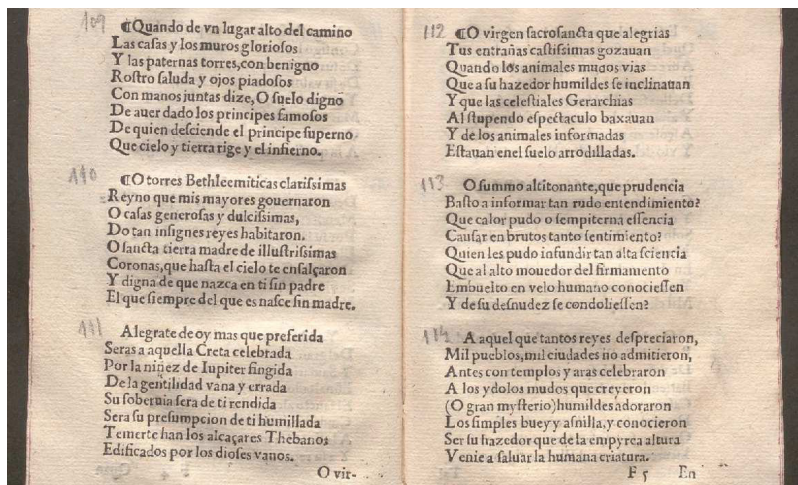 109
¶Quando de vn lugar alto del camino
Las casas y los muros gloriosos
Y las paternas torres, con benigno
Rostro saluda y ojos piadosos
Con manos juntas dize, O suelo digno
De auer dado los principes famosos
De quien desciende el principe superno
Que cielo y tierra rige y el infierno.
110
¶O torres Bethleemiticas clarissimas
Reyno que mis mayores gouernaron
O casas generosas y dulcissimas,
Do tan insignes reyes habitaron.
O sancta tierra madre de illustrissimas
Coronas, que hasta el cielo te ensalçaron
Y digna de que nazca en ti sin padre
El que siempre del que es nasce sin madre.
111
Alegrate de oy mas que preferida
Seras a aquella Creta celebrada
Por la niñez de Iupiter fingida
De la gentilidad vana y errada
Su soberuia sera de ti rendida
Sera su presumpcion de ti humillada
Temerte han los alcaçares Thebanos
Edificados por los dioses vanos.
O vir-
112
¶O virgen sacrosancta que alegrias
Tus entrañas castissimas gozauan
Quando los animales mudos vias
Que a su hazedor humildes se inclinauan
Y que las celestiales Gerarchias
Al stupendo espectaculo baxauan
Y de los animales informadas
Estauan enel suelo arrodilladas.
113
O summo altitonante, que prudencia
Basto a informar tan rudo entendimiento?
Que calor pudo o sempiterna essencia
Causar en brutos tanto sentimiento?
Quien les pudo infundir tan alta sciencia
Que al alto mouedor del firmamento
Embuelto en velo humano conociessen
Y de su desnudez se condoliessen?
114
A aquel que tantos reyes despreciaron,
Mil pueblos, mil ciudades no admitieron,
Antes con templos y aras celebraron
A los ydolos mudos que creyeron
(O gran mysterio) humildes adoraron
Los simples buey y asnilla, y conocieron
Ser su hazedor que de la empyrea altura
Venie a saluar la humana criatura.
F 5
En